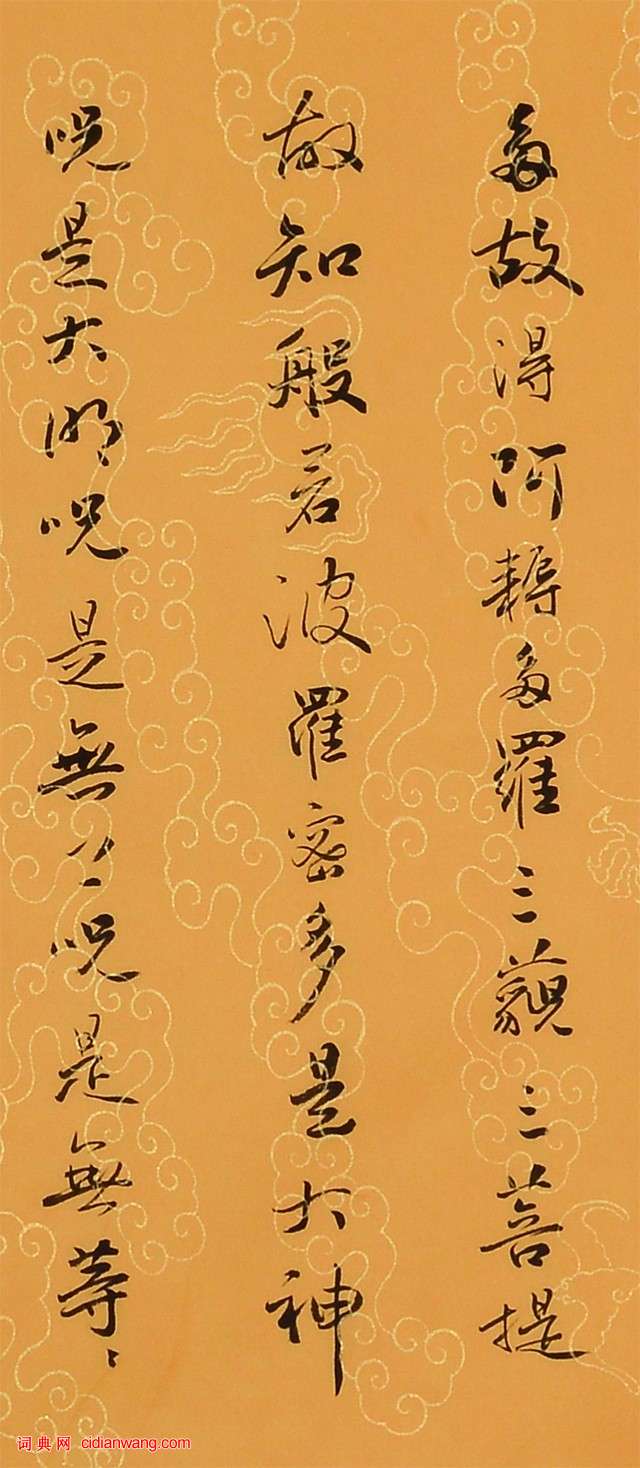 多故得阿耨多羅三藐三菩提
故知般若波羅密多是大神
呪是大明呪是無上呪是無等〻
词典网 cidianwang.com